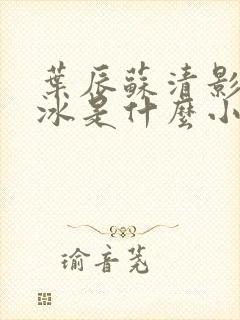 葉辰蘇清影
冰是什麼小
瑜音茺